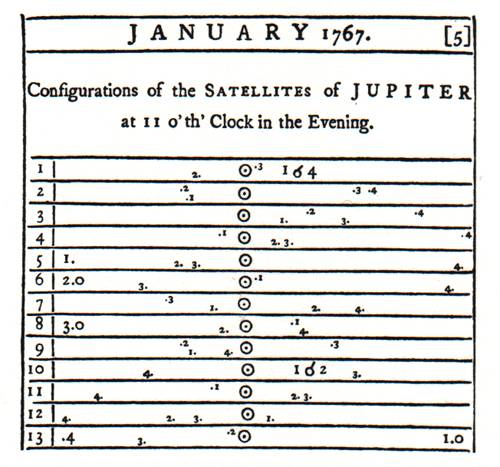 JANUARY 1767. [5]
Configurations of the SATELLITES of JUPITER
at 11 o'th' Clock in the Evening.
1 2. ☉ .3 1 ☌ 4
2 .2 .1 ☉ .3 .4
3 ☉ 1. .2 3. .4
4 .1 ☉ 2. 3. .4
5 1. 2. 3. ☉ 4.
6 2.0 3. ☉ .1 4.
7 .3 1. ☉ 2. 4.
8 3.0 2. ☉ .1 4.
9 .2 1. 4. ☉ .3
10 4. ☉ 1 ☌ 2 3.
11 4. .1 ☉ 2. 3.
12 4. 2. 3. ☉ 1.
13 .4 3. .2 ☉ 1.0